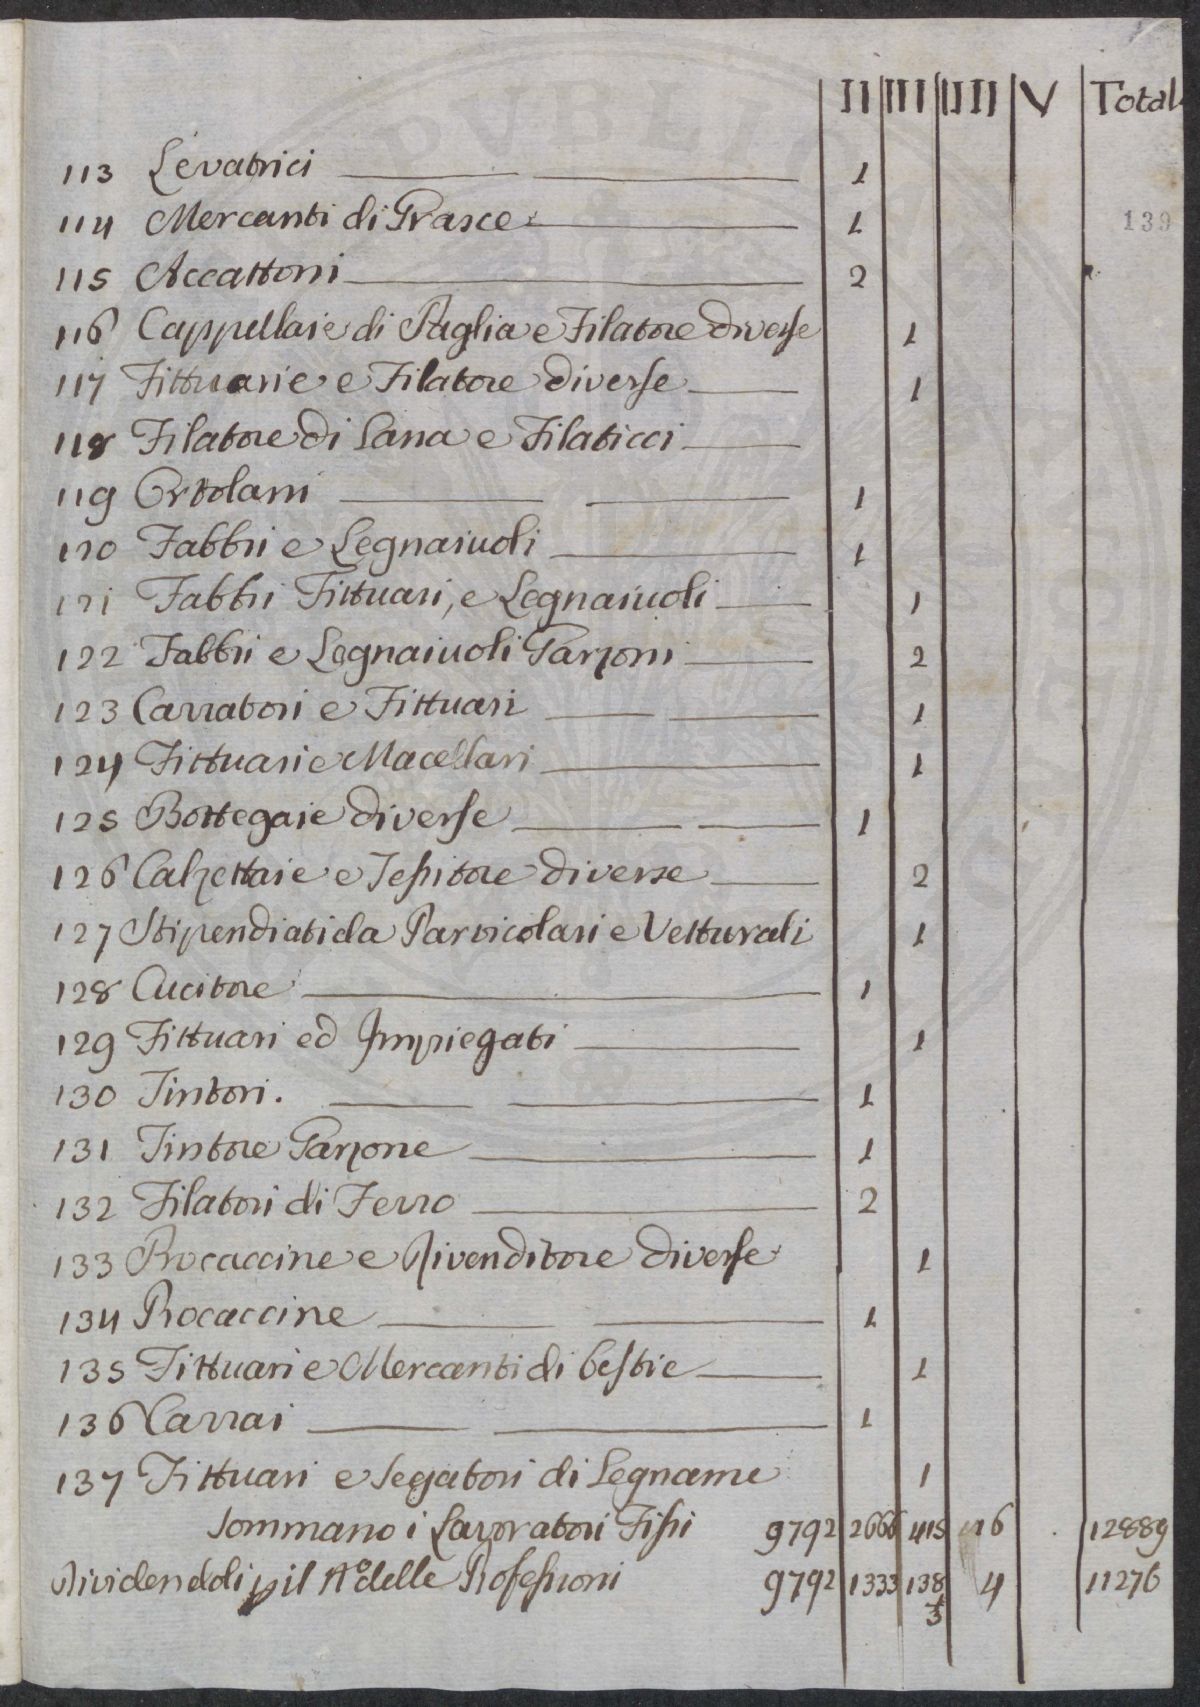 II III IIII V Total
113 Levatrici 1
114 Mercanti di Grasce 1
139
115 Accattoni 2
116 Cappellaie di Paglia e Filatore diverse 1
117 Fittuarie e Filatore diverse 1
118 Filatore di Lana e Filaticci
119 Ortolani 1
120 Fabbri e Legnaiuoli 1
121 Fabbri Fittuari, e Legnaiuoli 1
122 Fabbri e Legnaiuoli Garzoni 2
123 Carratori e Fittuari 1
124 Fittuari e Macellari 1
125 Bottegaie diverse 1
126 Calzettaie e Tessitore diverse 2
127 Stipendiati da Particolari e Vetturali 1
128 Cucitore 1
129 Fittuari ed Impiegati 1
130 Tintori. 1
131 Tintore Garzone 1
132 Filatori di Ferro 2
133 Procaccine e Rivenditore diverse 1
134 Procaccine 1
135 Fittuari e Mercanti di bestie 1
136 Carrai 1
137 Fittuari e Segatori di Legname 1
Sommano i Lavoratori Fissi 9792 2666 415 16 12889
Dividendoli p il No delle Professioni 9792 1333 138 1/3 4 11276